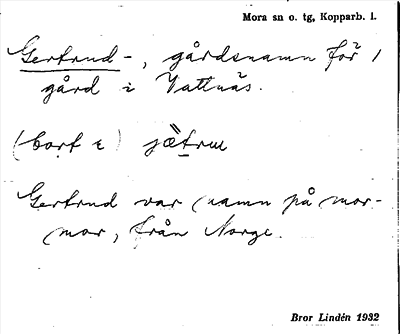 Mora sn o. tg, Kopparb. l.
Gertrud-, gårdsnamn för 1
gård i Vattnäs.
(bort ε) jætrru
Gertrud var namn på mor-
mor, från Norge.
Bror Lindén 1932